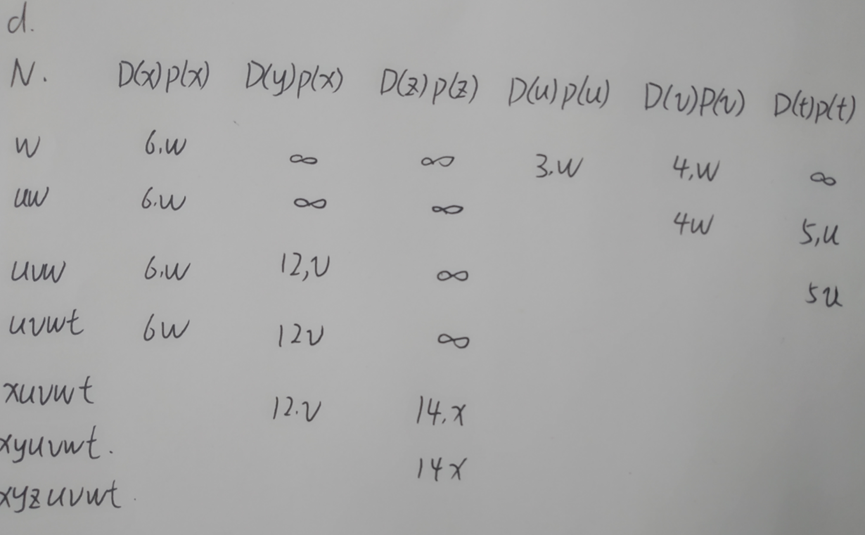 d.
N. D(x)p(x) D(y)p(x) D(z)p(z) D(u)p(u) D(v)P(v) D(t)p(t)
w 6.w ∞ ∞ 3.w 4.w ∞
uw 6.w ∞ ∞ 4w 5,u
uvw 6.w 12,v ∞ 5u
uvwt 6w 12v ∞
xuvwt 12.v 14.x
xyuvwt. 14x
xyzuvwt.